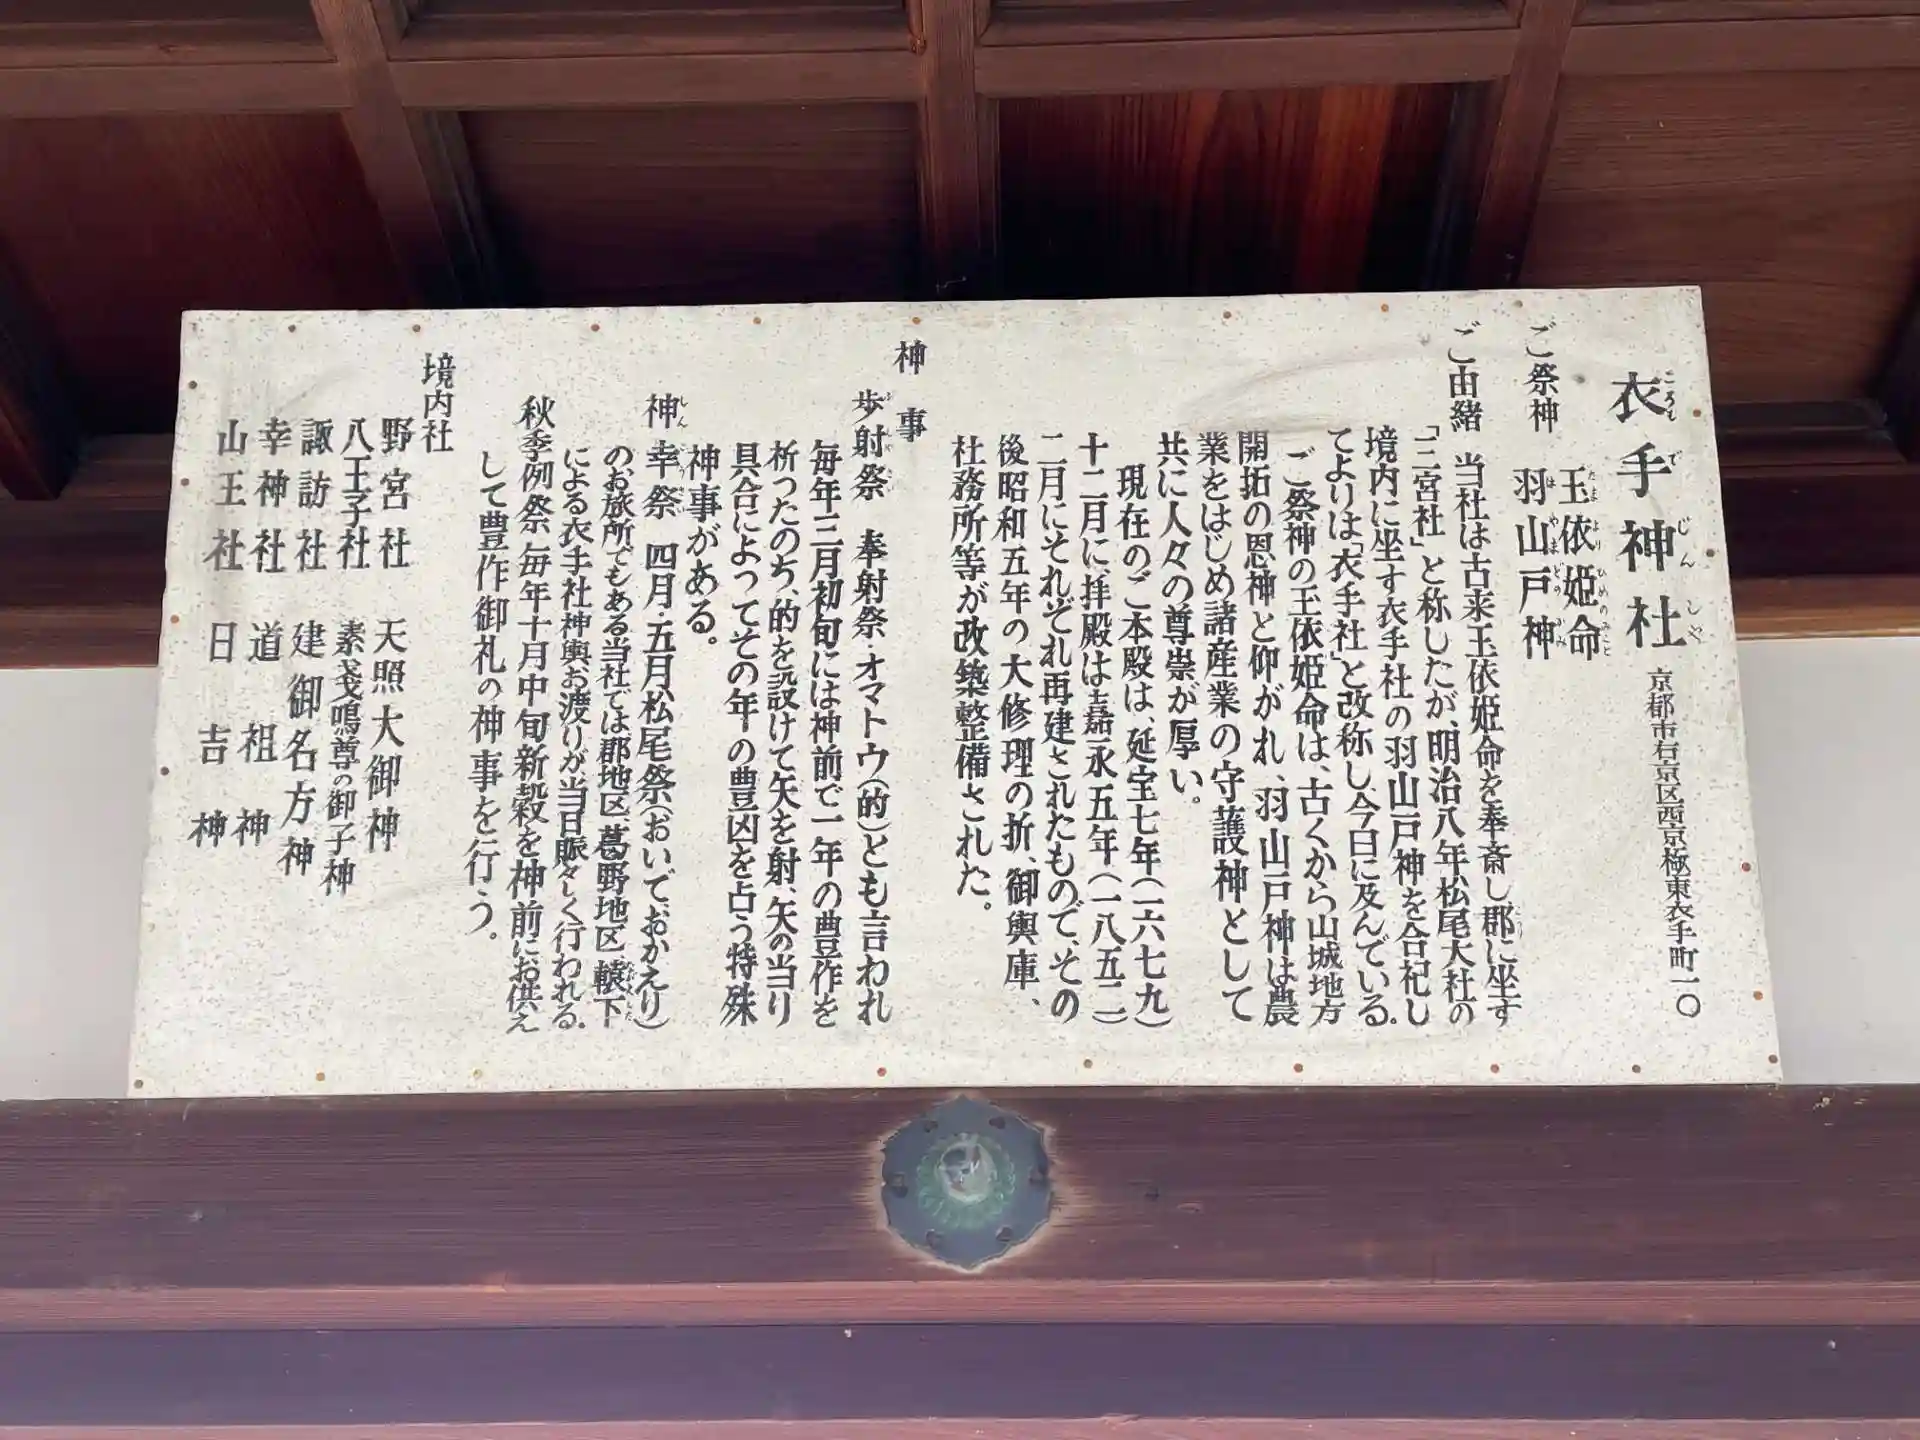 衣手神社 京都市右京区西京極東衣手町一〇
ころもでじんしや
ご祭神 玉依姫命
たまよりひめのみこと
羽山戸神
はやまどのかみ
ご由緒 当社は古来玉依姫命を奉斎し、郡に坐す
「三宮社」と称したが、明治八年松尾大社の
境内に坐す衣手社の羽山戸神を合祀し
てよりは「衣手社」と改称し、今日に及んでいる。
ご祭神の玉依姫命は、古くから山城地方
開拓の恩神と仰がれ、羽山戸神は農
業をはじめ諸産業の守護神として
共に人々の尊崇が厚い。
現在のご本殿は、延宝七年(一六七九)
十二月に、拝殿は嘉永五年(一八五二)
二月にそれぞれ再建されたもので、その
後昭和五年の大修理の折、御輿庫、
社務所等が改築整備された。
神事
歩射祭 奉射祭・オマトウ(的)とも言われ
毎年三月初旬には神前で一年の豊作を
祈ったのち、的を設けて矢を射、矢の当り
具合によってその年の豊凶を占う特殊
神事がある。
神幸祭 四月・五月松尾祭(おいで、おかえり)
のお旅所でもある当社では郡地区、葛野地区、轅下
による衣手社神輿お渡りが当日賑々しく行われる。
秋季例祭 毎年十月中旬新穀を神前にお供え
して豊作御礼の神事を行う。
境内社
野宮社 天照大御神
八王子社 素戔鳴尊の御子神
諏訪社 建御名方神
幸神社 道祖神
山王社 日吉神